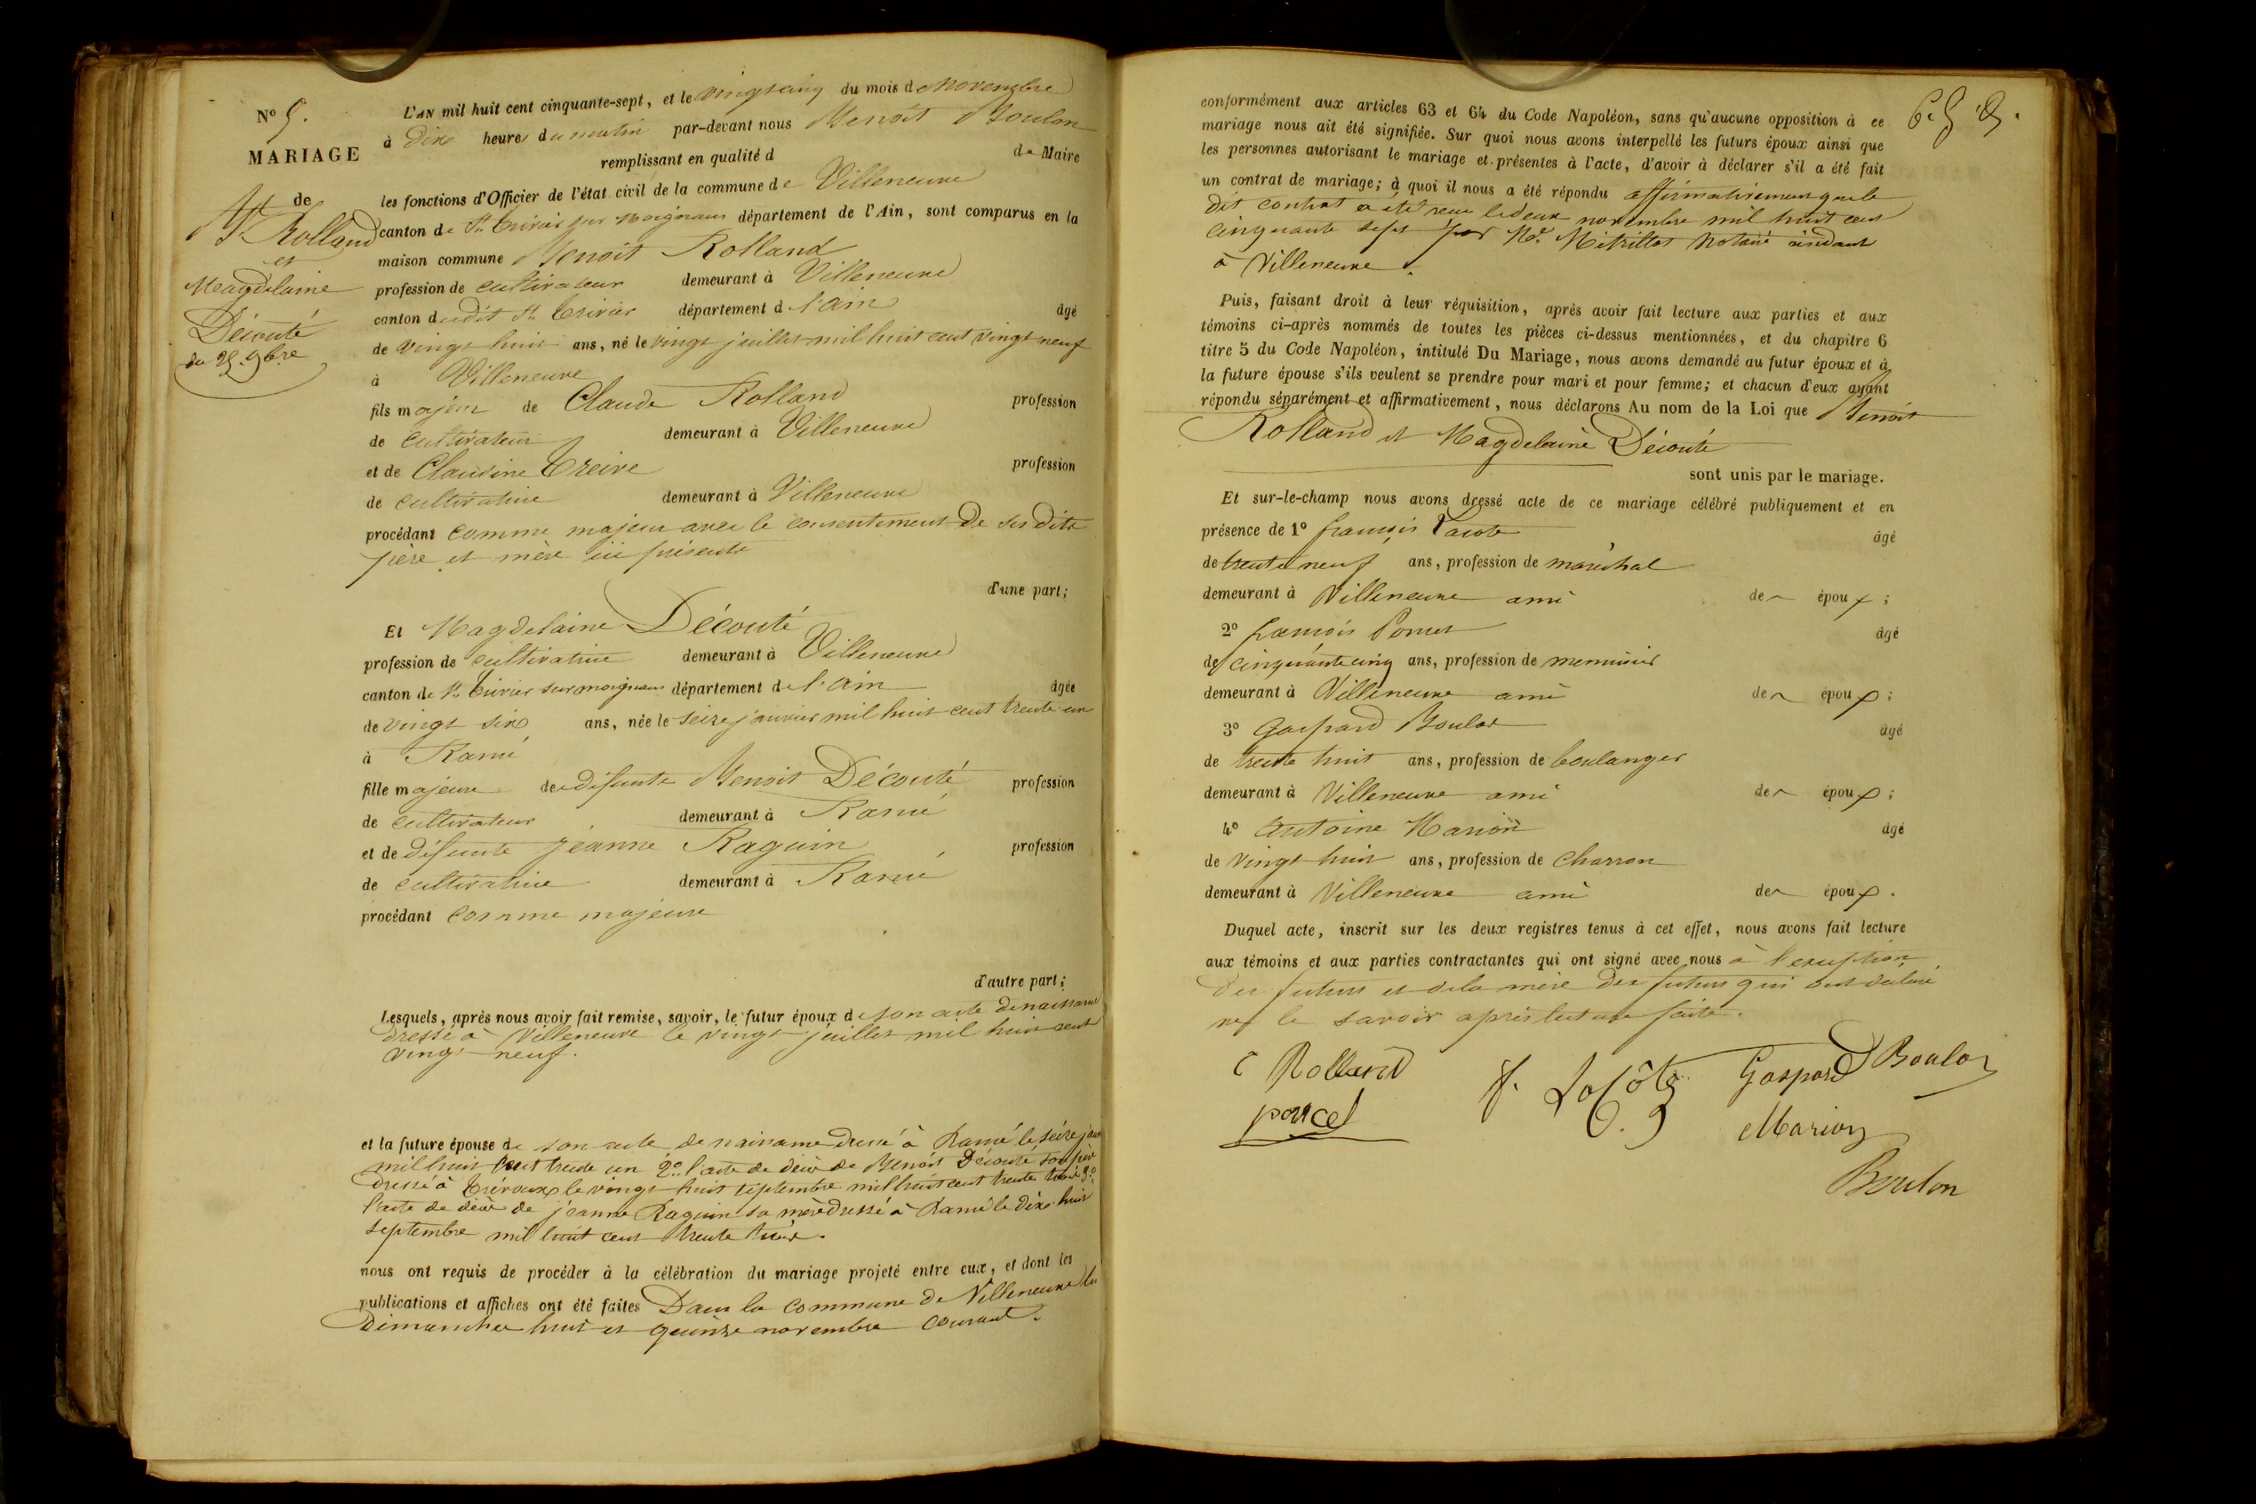 No 5.
MARIAGE
de
Bt Rolland
et
Magdelaine
Découté
du 25 9bre
L'AN mil huit cent cinquante-sept, et le vingt cinq du mois de Novembre
à Dix heures du matin par-devant nous Benoît Boulon
remplissant en qualité d de Maire
les fonctions d'Officier de l'état civil de la commune de Villeneuve
canton de St Trivier sur Moignans département de l'Ain, sont comparus en la
maison commune Benoit Rolland
profession de cultivateur demeurant à Villeneuve
canton dudit St Trivier département d l'ain âgé
de vingt huit ans, né le vingt juillet mil huit cent vingt neuf
à Villeneuve
fils majeur de Claude Rolland profession
de cultivateur demeurant à Villeneuve
et de Claudine Treive profession
de cultivatrice demeurant à Villeneuve
procédant comme majeur avec le consentement de ses dits
père et mère ici présents
d'une part;
Et Magdelaine Découté
profession de cultivatrice demeurant à Villeneuve
canton de St Trivier sur moignans département de l'ain âgée
de vingt six ans, née le seize janvier mil huit cent trente un
à Rancé
fille majeure de défunts Benoit Découté profession
de cultivateur demeurant à Rancé
et de défunte jéanne Raguin profession
de cultivatrice demeurant à Rancé
procédant comme majeure
d'autre part;
Lesquels, après nous avoir fait remise, savoir, le futur époux de son acte de naissance
dressé à Villeneuve le vingt juillet mil huit cent
vingt neuf.
et la future épouse de son acte de naissance dressé à Rancé le seize janv
mil huit cent trente un 2o l'acte de décès de Benoit Découté son père
dressé à Trévoux le vingt huit septembre mil huit cent trente 3o
l'acte de décès de jeanne Raguin sa mère dressé à Rancé le dix huit
septembre mil huit cent trente
nous ont requis de procéder à la célébration du mariage projeté entre eux, et dont les
publications et affiches ont été faites Dans la commune de Villeneuve les
Dimanches huit et quinze novembre courant.
conformément aux articles 63 et 64 du Code Napoléon, sans qu'aucune opposition à ce
mariage nous ait été signifiée. Sur quoi nous avons interpellé les futurs époux ainsi que
les personnes autorisant le mariage et présentes à l'acte, d'avoir à déclarer s'il a été fait
un contrat de mariage; à quoi il nous a été répondu affirmativement que le
dit contrat a été reçu le deux novembre mil huit cent
cinquante sept par Me Mitrillot Notaire résidant
à Villeneuve.
Puis, faisant droit à leur réquisition, après avoir fait lecture aux parties et aux
témoins ci-après nommés de toutes les pièces ci-dessus mentionnées, et du chapitre 6
titre 5 du Code Napoléon, intitulé Du Mariage, nous avons demandé au futur époux et à
la future épouse s'ils veulent se prendre pour mari et pour femme; et chacun d'eux ayant
répondu séparément et affirmativement, nous déclarons Au nom de la Loi que Benoit
Rolland et Magdelaine Découté
sont unis par le mariage.
Et sur-le-champ nous avons dressé acte de ce mariage célébré publiquement et en
présence de 1o françois Lacote âgé
de trente neuf ans, profession de maréchal
demeurant à Villeneuve ami de époux;
2o françois Poncet âgé
de cinquante cinq ans, profession de menuisier
demeurant à Villeneuve ami de époux;
3o Gaspard Boulon âgé
de trente huit ans, profession de boulanger
demeurant à Villeneuve ami de époux;
4o antoine Marion âgé
de vingt huit ans, profession de charron
demeurant à Villeneuve ami de époux.
Duquel acte, inscrit sur les deux registres tenus à cet effet, nous avons fait lecture
aux témoins et aux parties contractantes qui ont signé avec nous à l'exception
des futurs et de la mère du futur qui ont déclaré
ne le savoir après lecture faite.
c Rolland f. Lacôte Gaspard Boulon
poncet Marion
Boulon